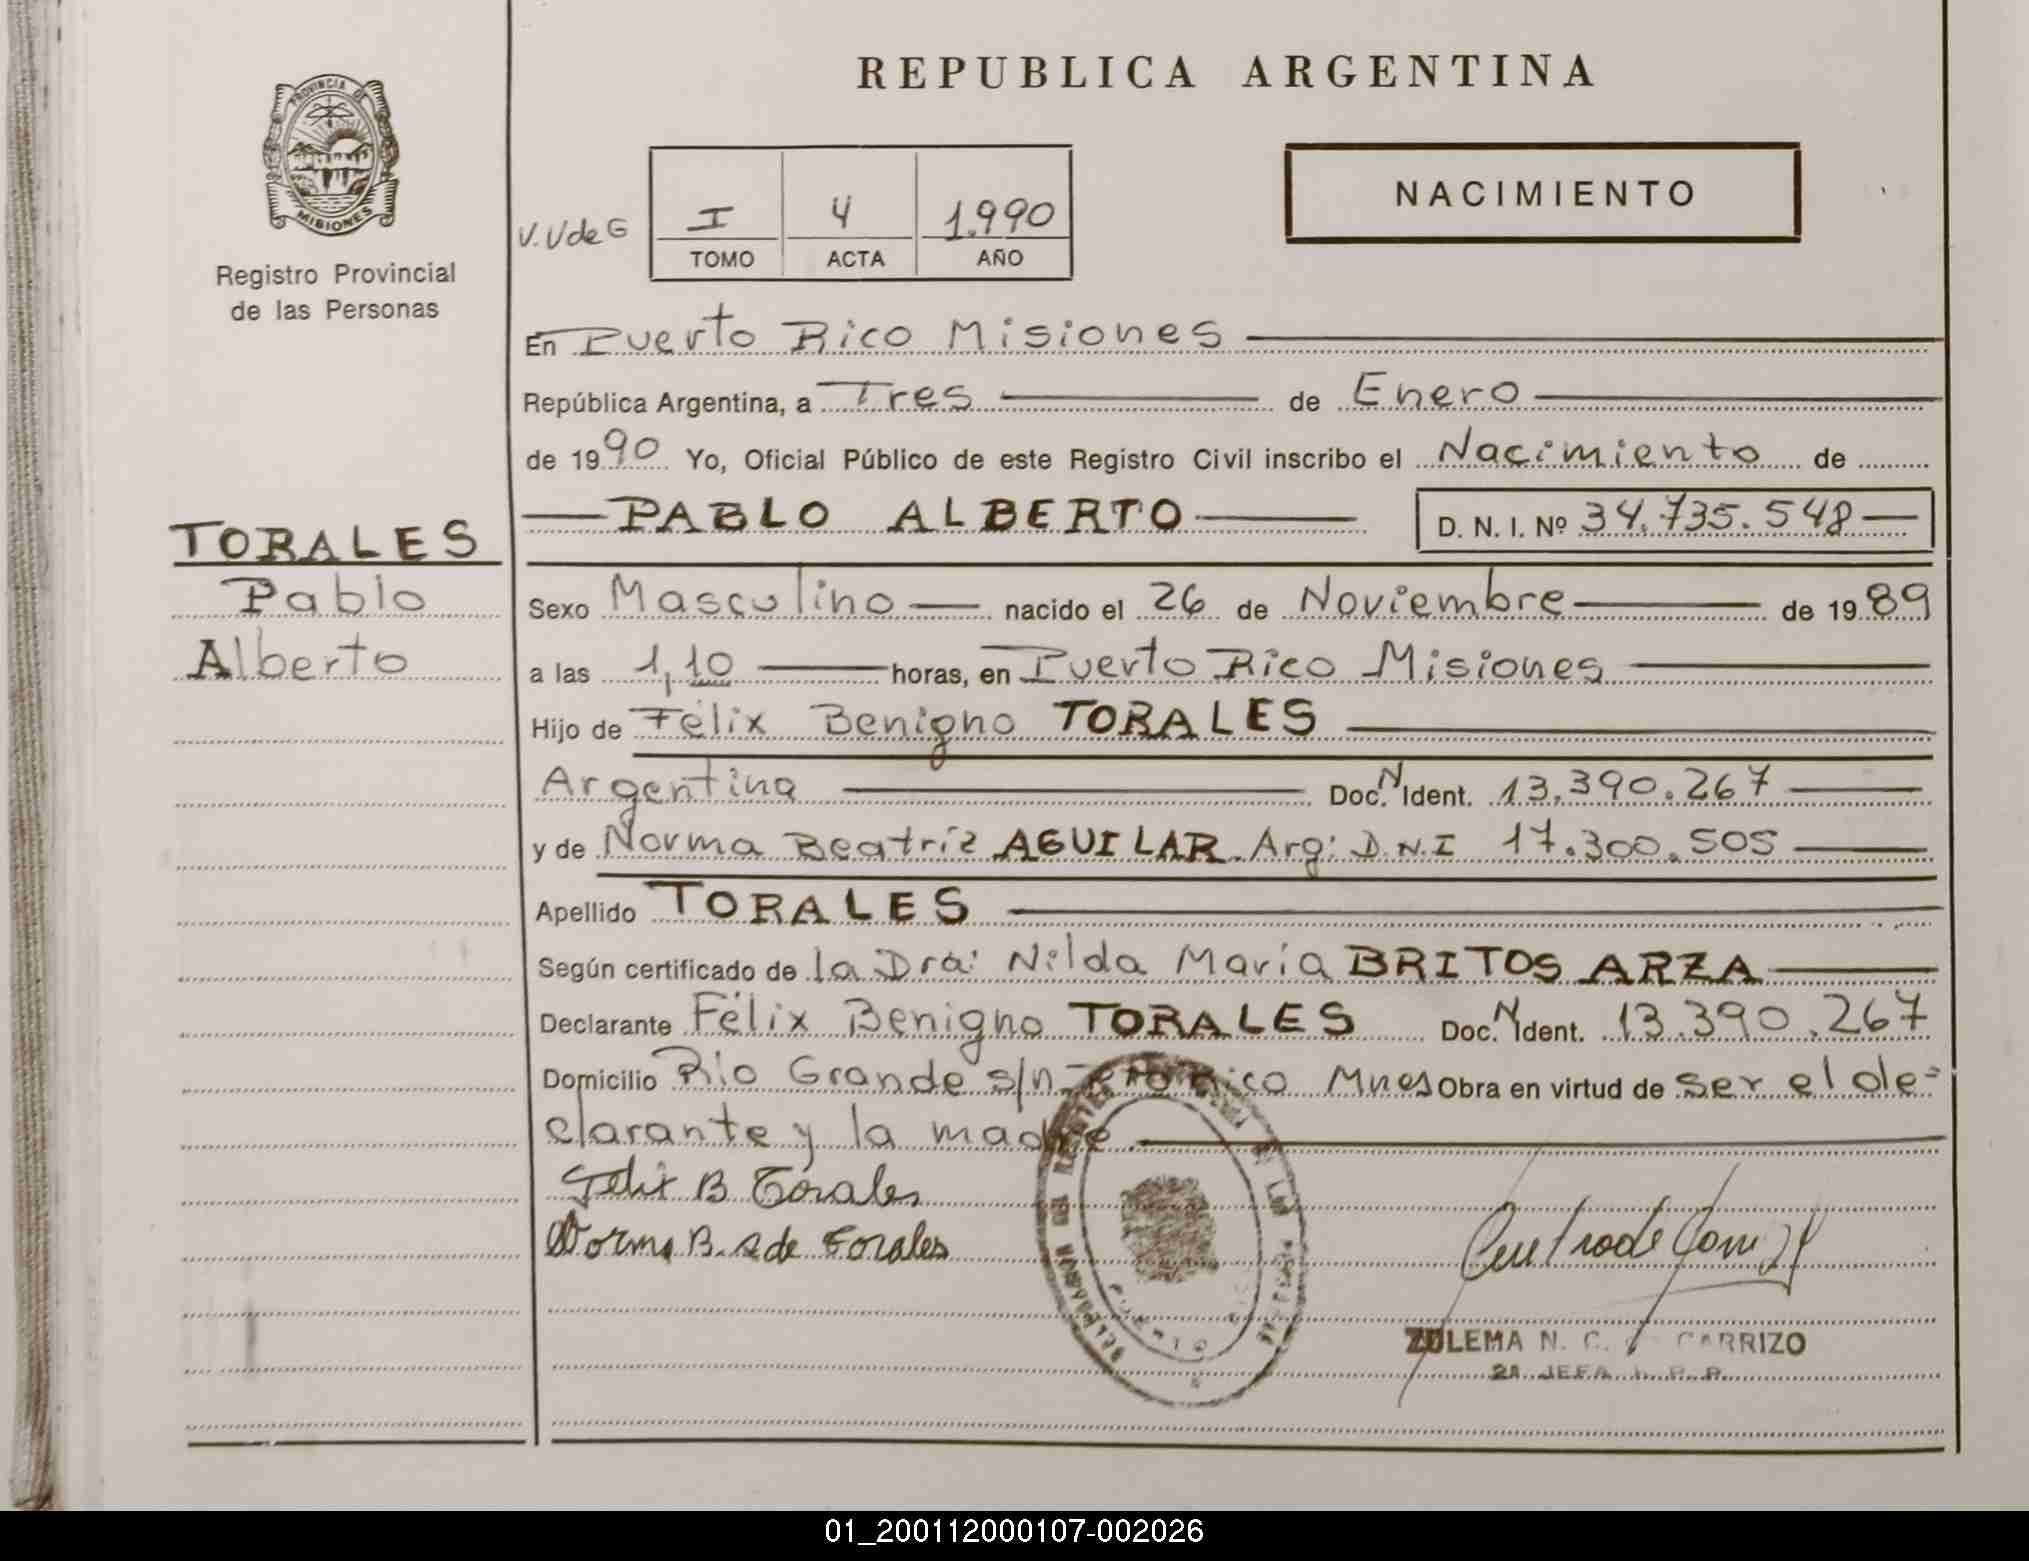 REPUBLICA ARGENTINA
PROVINCIA DE MISIONES
Registro Provincial
de las Personas
V.V de G
I 4 1.990
TOMO ACTA AÑO
NACIMIENTO
En Puerto Rico Misiones
República Argentina, a Tres de Enero
de 1990 Yo, Oficial Público de este Registro Civil inscribo el Nacimiento de
PABLO ALBERTO D. N. I. Nº 34.735.548
TORALES
Pablo
Alberto
Sexo Masculino nacido el 26 de Noviembre de 1989
a las 1,10 horas, en Puerto Rico Misiones
Hijo de Félix Benigno TORALES
Argentina Doc. N Ident. 13.390.267
y de Norma Beatriz AGUILAR Arg: D.N.I 17.300.505
Apellido TORALES
Según certificado de la Dra: Nilda María BRITOS ARZA
Declarante Félix Benigno TORALES Doc. N Ident. 13.390.267
Domicilio Río Grande s/n - Pto Rico Mnes Obra en virtud de ser el de=
clarante y la madre.
Felix B Torales
Norma B. A de Torales
ZULEMA N. C. CARRIZO
2a JEFA R. P. P.
01_200112000107-002026